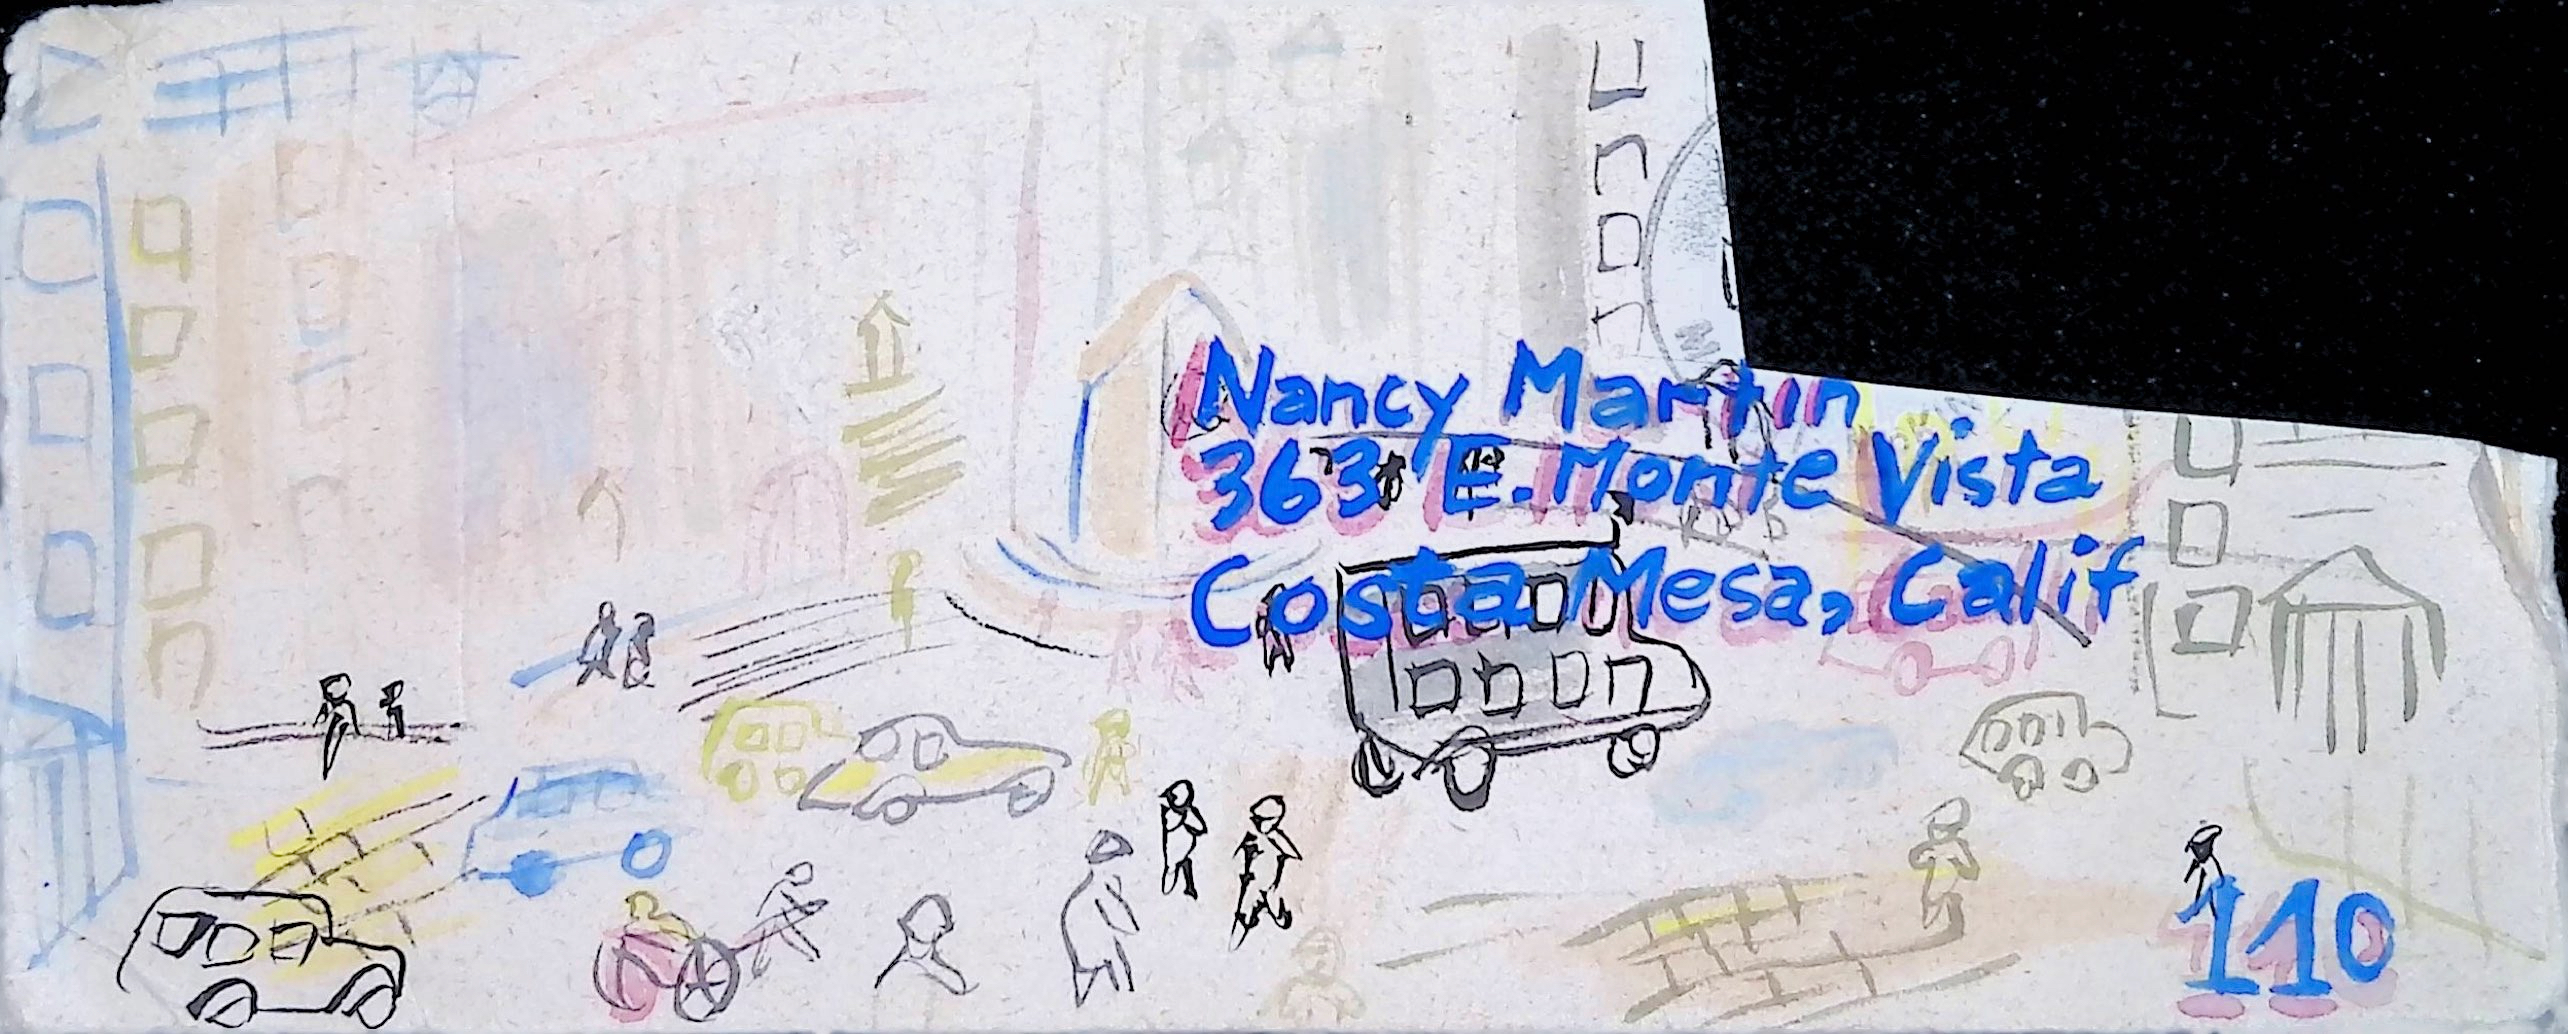 Nancy Martin
363 E. Monte Vista
Costa Mesa, Calif
110